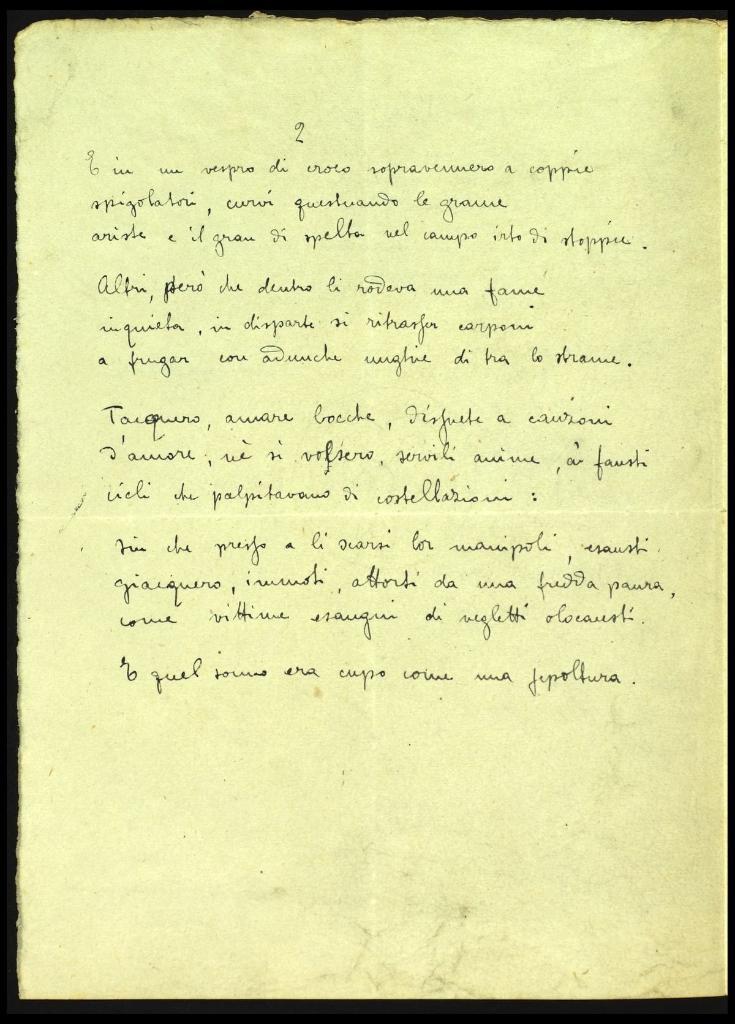 2
E in un vespro di croco sopravennero a coppie
spigolatori, curvi questuando le grame
ariste e il gran di spelta nel campo irto di stoppie.
Altri, però che dentro li rodeva una fame
inquieta, in disparte si ritrasser carponi
a frugar con adunche unghie di tra lo strame.
Tacquero, amare bocche, disuete a canzoni
d'amore, nè si volsero, servili anime, ai fausti
cieli che palpitavano di costellazioni:
sin che presso a li scarsi lor manipoli, esausti
giacquero, immoti, attorti da una fredda paura,
come vittime esangui di negletti olocausti.
E quel sonno era cupo come una sepoltura.